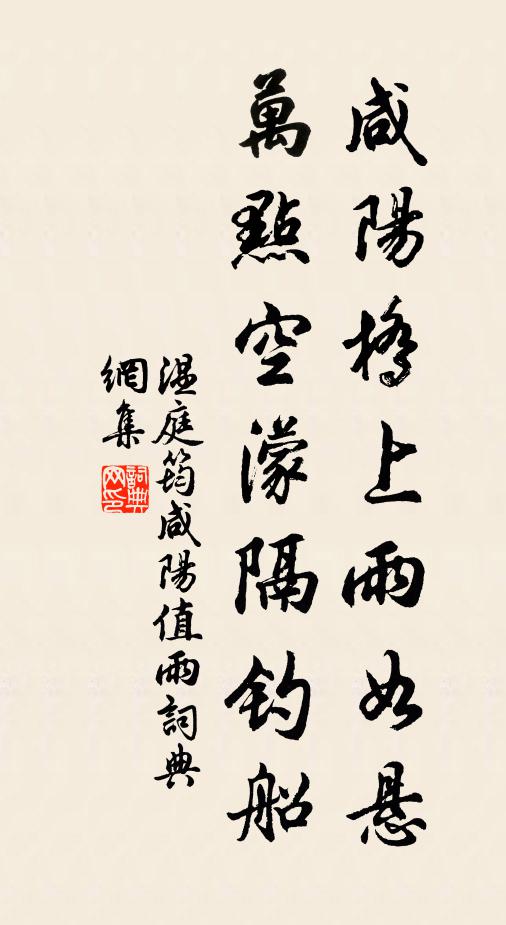 咸陽橋上雨如悬
萬點空濛隔钓船
温庭筠咸陽值雨詞典
網集
詞典
网印